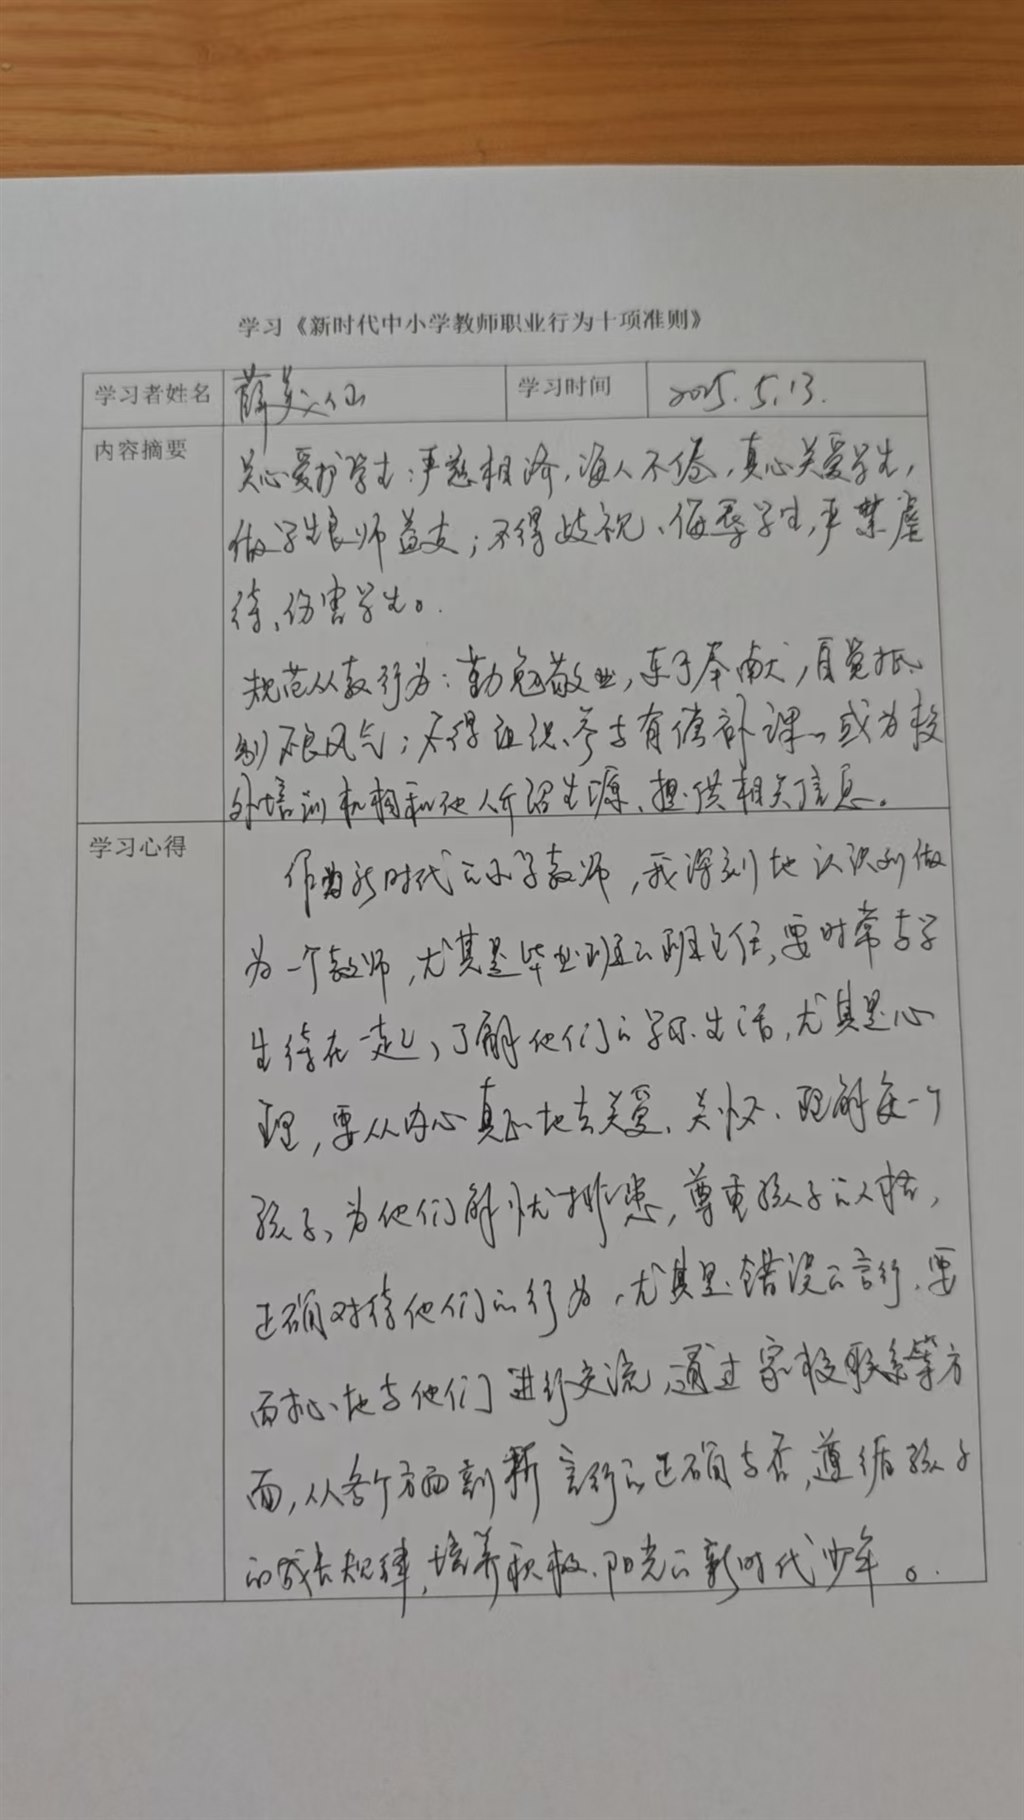 学习《新时代中小学教师职业行为十项准则》
学习者姓名 薛 仙 学习时间 2025.5.13.
内容摘要
关心爱护学生：严慈相济，诲人不倦，真心关爱学生，
做学生良师益友；不得歧视、侮辱学生，严禁虐
待、伤害学生。
规范从教行为：勤勉敬业，乐于奉献，自觉抵
制不良风气；不得组织、参与有偿补课，或为校
外培训机构和他人介绍生源、提供相关信息。
学习心得
作为新时代的小学教师，我深刻地认识到做
为一个教师，尤其是毕业班的班主任，要时常与学
生待在一起，了解他们的学习、生活，尤其是心
理，要从内心真正地去关爱、关怀、理解每一个
孩子，为他们解忧排患，尊重孩子的人格，
正确对待他们的行为，尤其是错误的言行，要
耐心地与他们进行交流，通过家校联系等方
面，从各个方面剖析言行的正确与否，遵循孩子
的成长规律，培养积极、阳光的新时代少年。